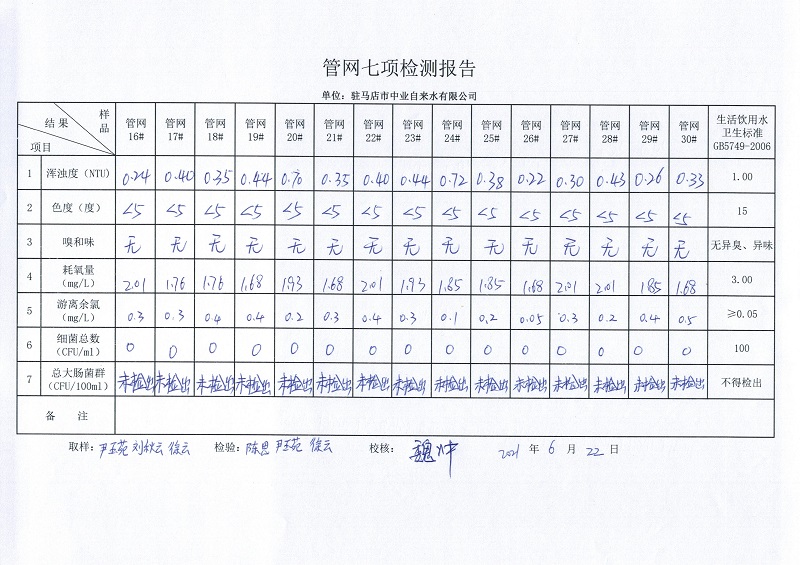 管网七项检测报告
单位：驻马店市中业自来水有限公司
结果 样品 项目 管网16# 管网17# 管网18# 管网19# 管网20# 管网21# 管网22# 管网23# 管网24# 管网25# 管网26# 管网27# 管网28# 管网29# 管网30# 生活饮用水卫生标准GB5749-2006
1 浑浊度（NTU） 0.24 0.40 0.35 0.44 0.70 0.35 0.40 0.44 0.72 0.38 0.22 0.30 0.43 0.26 0.33 1.00
2 色度（度） <5 <5 <5 <5 <5 <5 <5 <5 <5 <5 <5 <5 <5 <5 <5 15
3 嗅和味 无 无 无 无 无 无 无 无 无 无 无 无 无 无 无 无异臭、异味
4 耗氧量（mg/L） 2.01 1.76 1.76 1.68 1.93 1.68 2.01 1.93 1.85 1.85 1.68 2.01 2.01 1.85 1.68 3.00
5 游离余氯（mg/L） 0.3 0.3 0.4 0.4 0.2 0.3 0.4 0.3 0.1 0.2 0.05 0.3 0.2 0.4 0.5 ≥0.05
6 细菌总数（CFU/ml） 0 0 0 0 0 0 0 0 0 0 0 0 0 0 0 100
7 总大肠菌群（CFU/100ml） 未检出 未检出 未检出 未检出 未检出 未检出 未检出 未检出 未检出 未检出 未检出 未检出 未检出 未检出 未检出 不得检出
备 注
取样：尹玉苑 刘钦云 徐云 检验：陈恩 尹玉苑 徐云 校核：魏冲 2021 年 6 月 22 日